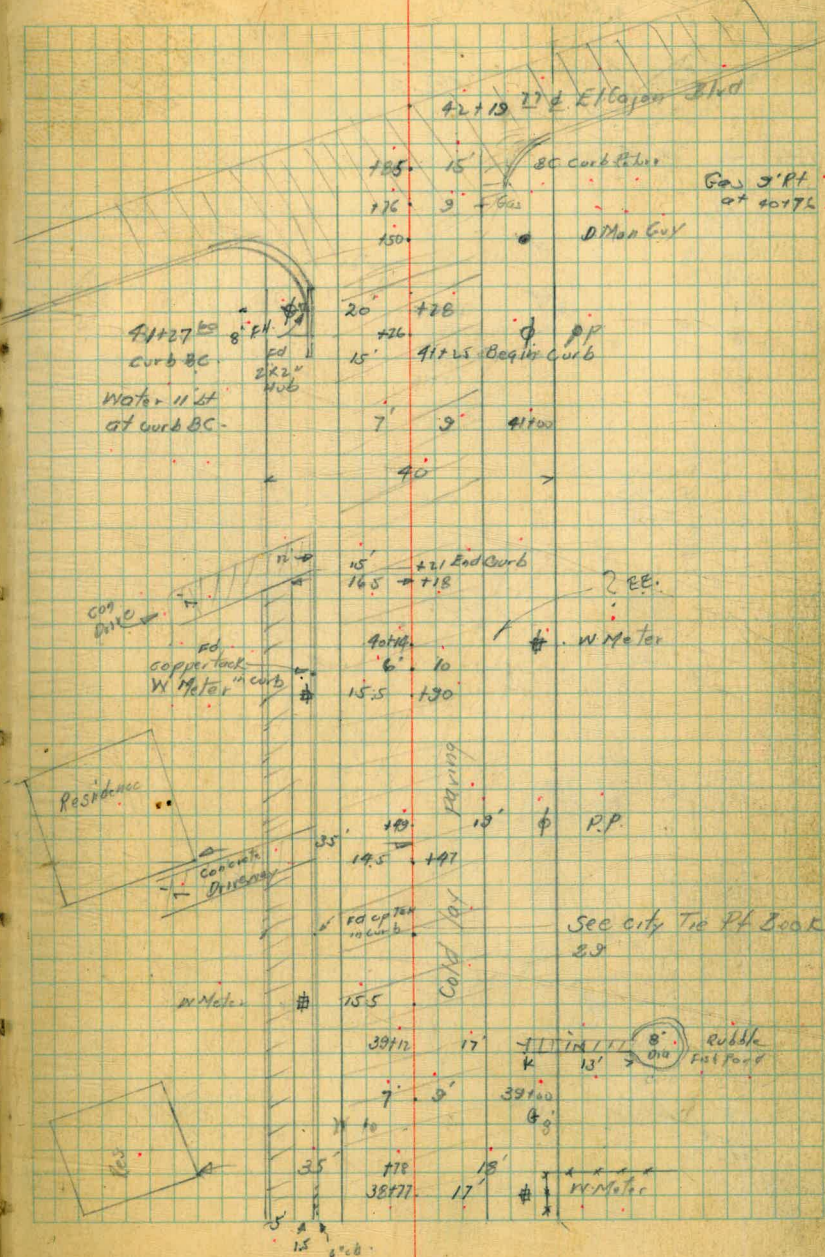 42+19 77 ¢ El Cajon Blvd
+85 15' BC Curb
+76 9 Gas
Gas 9' Rt
at 40+76
+50 D Man Guy
20' +28
41+27
8" FH
+26 PP
curb BC.
Fd
2"x2"
Hub
15' 41+25 Begin Curb
Water 11' Lt
at curb BC-
7' 9' 41+00
40
15' +21 End Curb
16.5 +18
Con
Drive
40+14 W Meter
Fd
copper tack
in curb
6' 10
W Meter
15.5 +90
Residence
Cold Lay Paving
+49 19' P.P.
35'
14.5 +47
Concrete
Driveway
Fd
in curb
See city Tie Pt Book
29
W Meter 15.5
39+12 17' 13' 8'
Dia
Rubble
Fish Pond
7' 9' 39+00
Res
35' +78 18'
38+77 17' W-Meter
5'
1.5
6" cb.